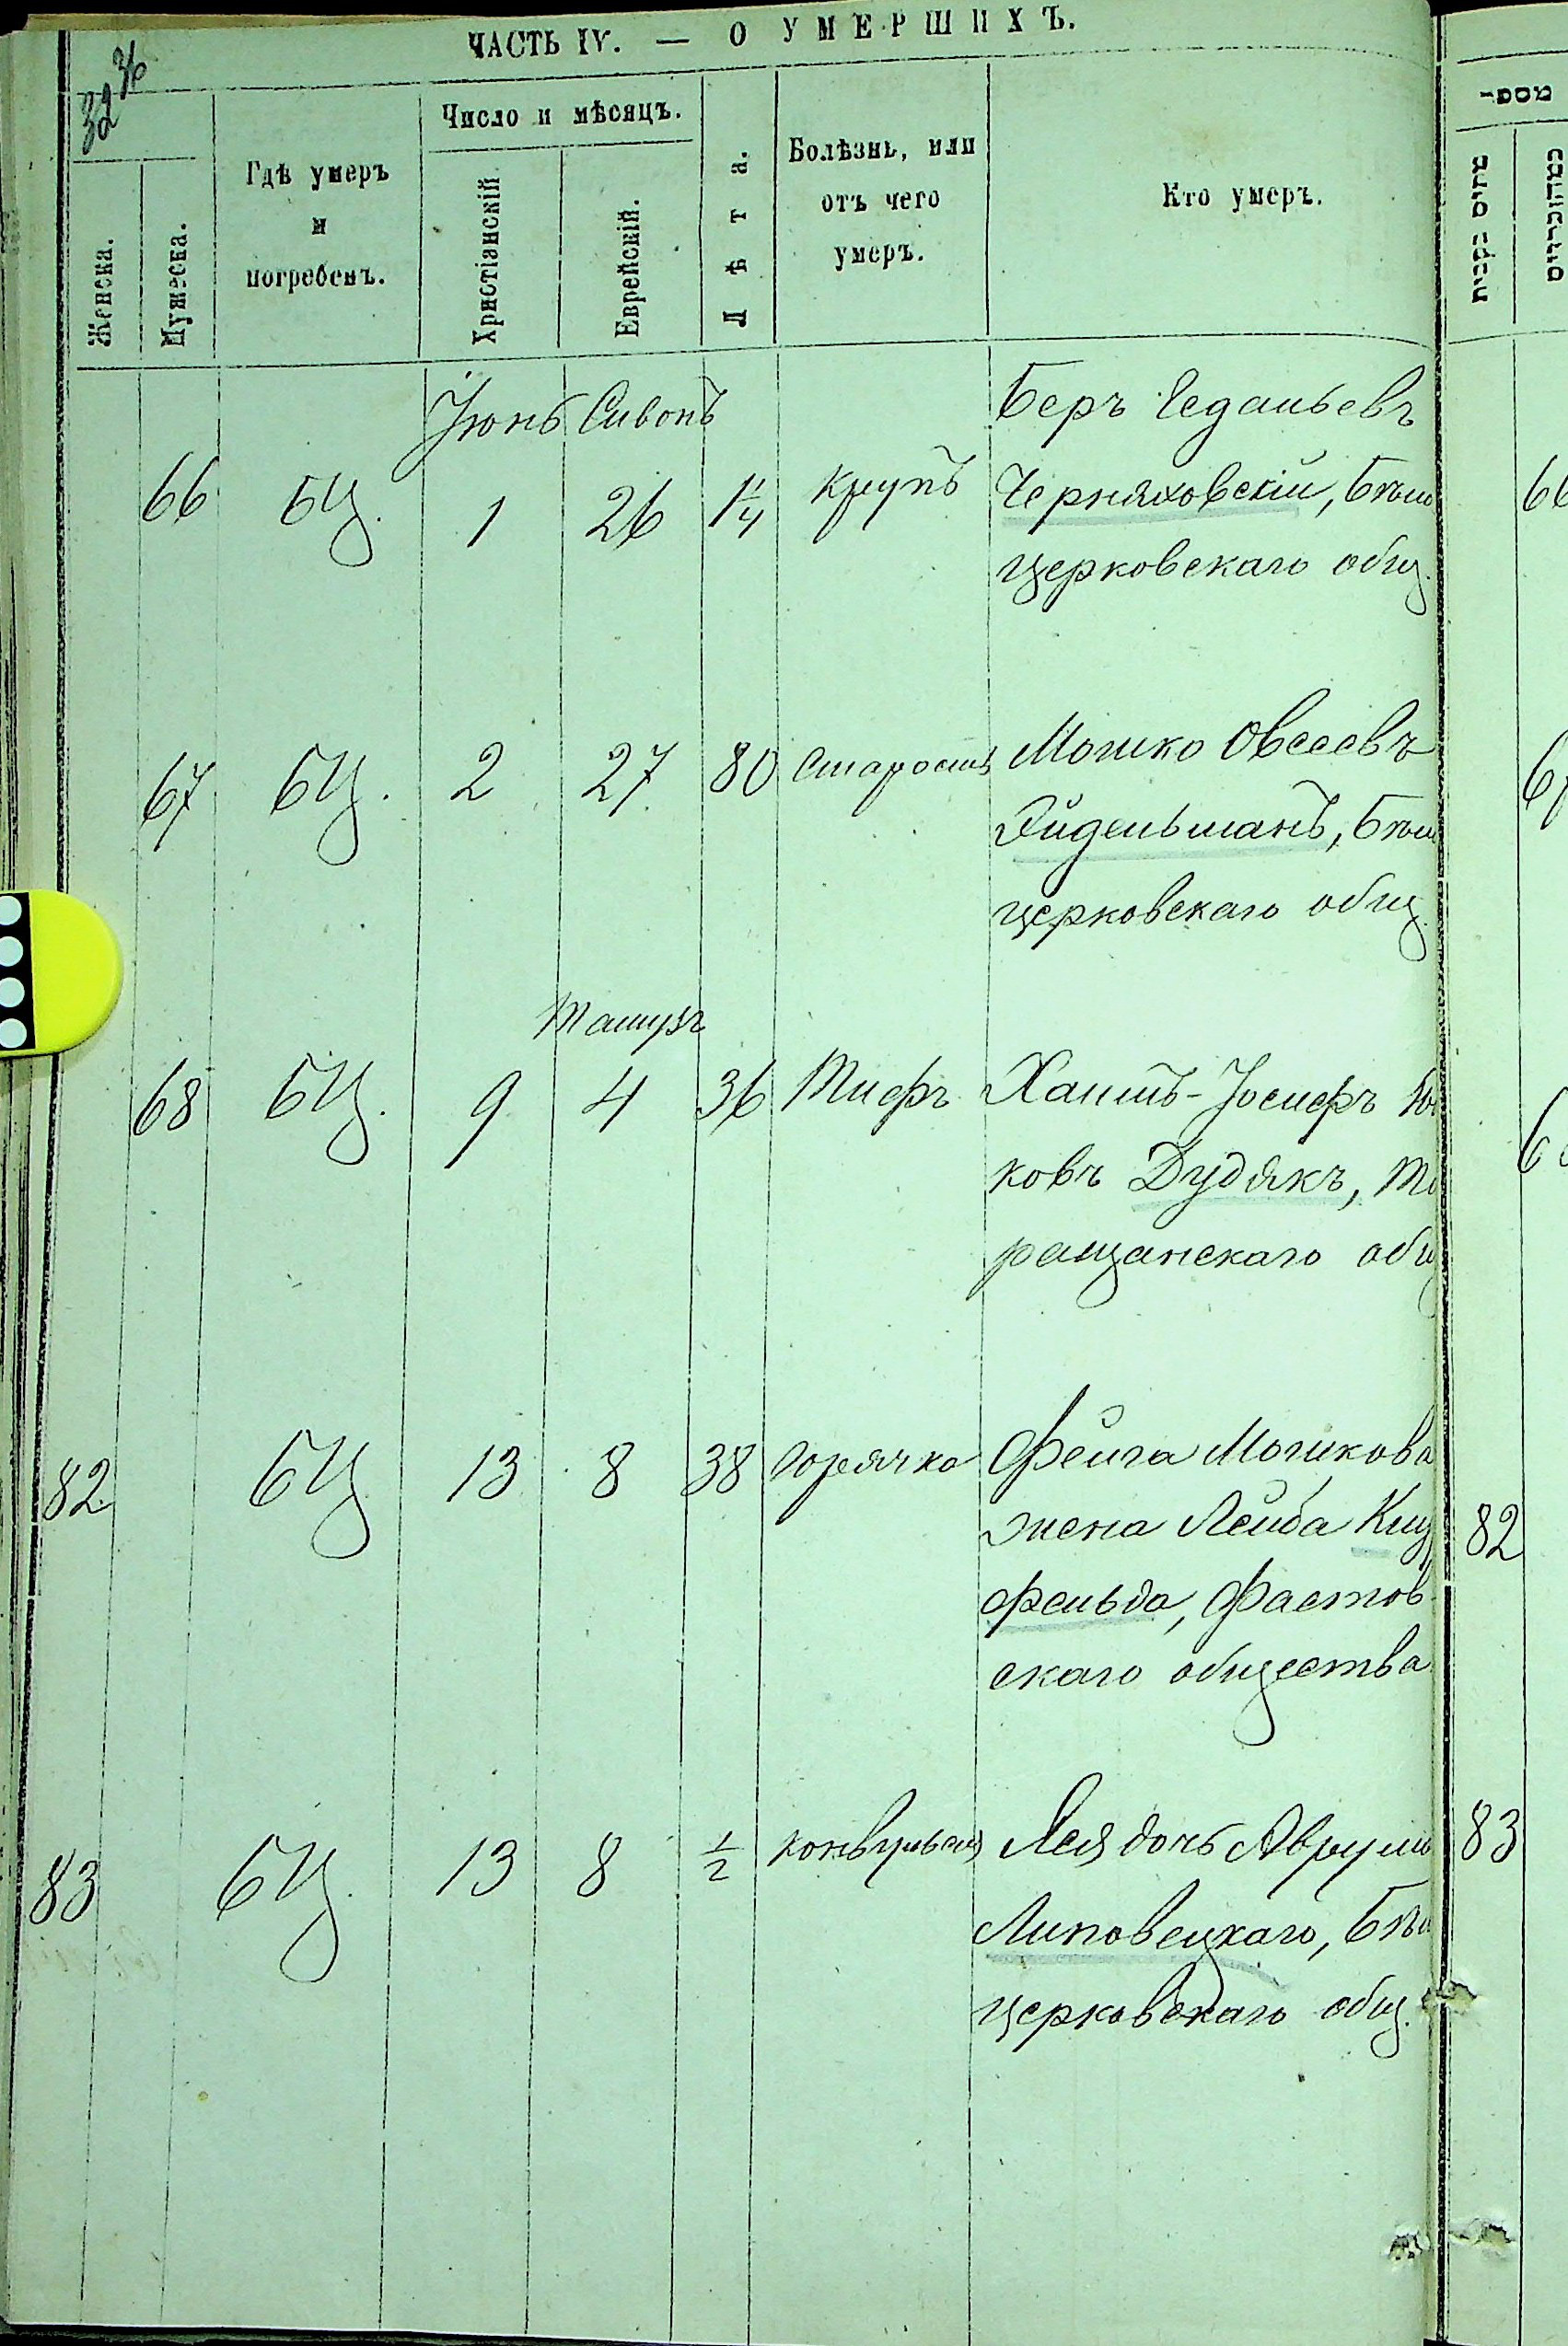 ЧАСТЬ IV. — О УМЕРШИХЪ.
32 36
Женска.
Мужеска.
Гдѣ умеръ
и
погребенъ.
Число и мѣсяцъ.
Христіанскій
Еврейскій.
Лѣта.
Болѣзнь, или
отъ чего
умеръ.
Кто умеръ.
Іюнь Сивонъ
66 БЦ. 1 26 1 1/4 крупъ
Беръ Гедальевъ
Черняховскій, Бѣло
церковскаго общ.
67 БЦ. 2 27 80 Старость
Мошко Овсеевъ
Эйдельманъ, Бѣло
церковскаго общ.
Тамузъ
68 БЦ. 9 4 36 Тифъ
Хаимъ-Іосифъ
ковъ Дудякъ, Та
ращанскаго общ
82 БЦ 13 8 38 горячка
Фейга Мошкова
жена Лейба Киц
фельда, Фастов
скаго общества
83 БЦ. 13 8 1/2 конвульсия
Лея дочь Аврум
Липовецкаго, Бѣл
церковскаго общ.
מספ-
66
67
82
83